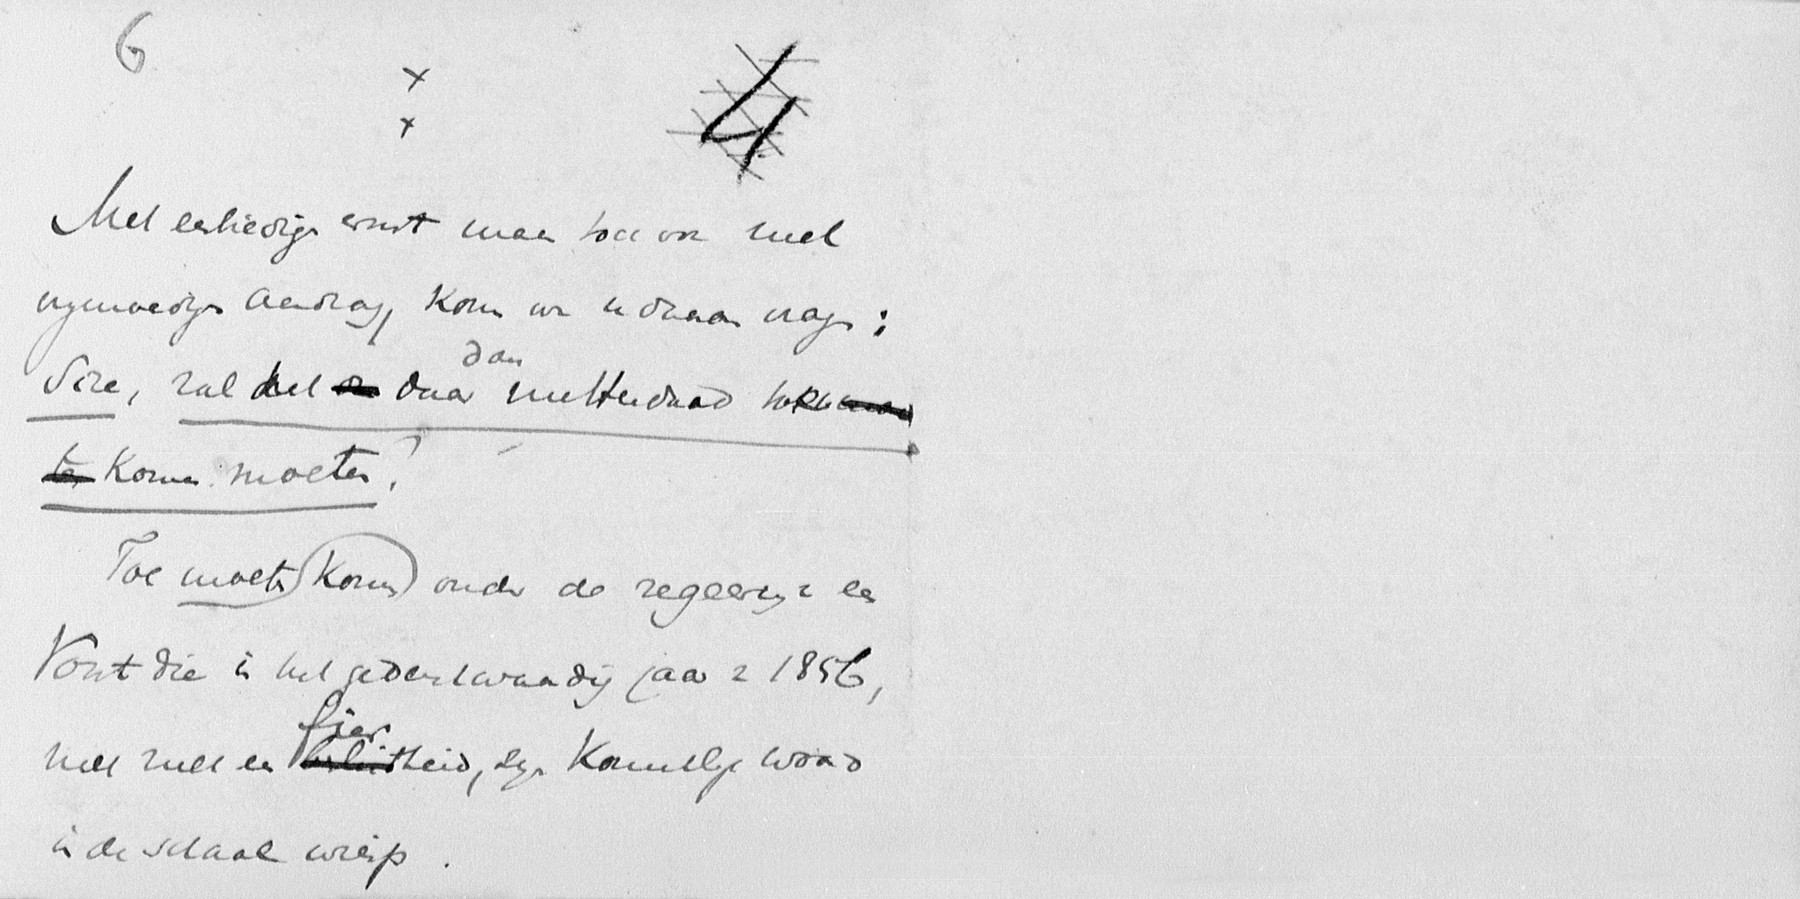 6
4
Met eerbiedige ernst maar toch ook met
vrijmoedige aandrag, kom ik u daarom vragen:
Sire, zal het daar dan metterdaad toe
komen moeten?
Toe moeten komen onder de regeering v een
Vorst die in het gedenkwaardig jaar 1856,
met een fierheid, zijn Koninklijk woord
in de schaal wierp.